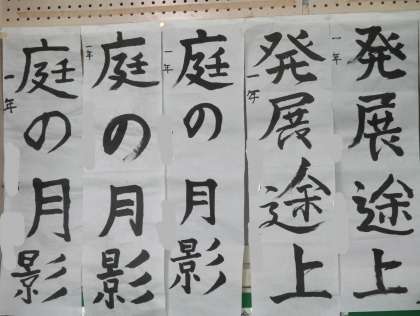 発展途上
一年
発展途上
一年
庭の月影
一年
庭の月影
一年
庭の月影
一年